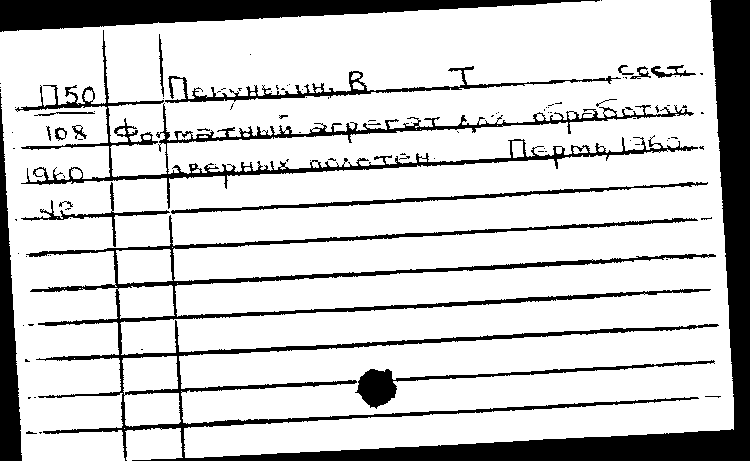 П50 Пекунькин, В Т , сост.
108 Форматный агрегат для обработки
1960 дверных полотен Пермь, 1960.
№